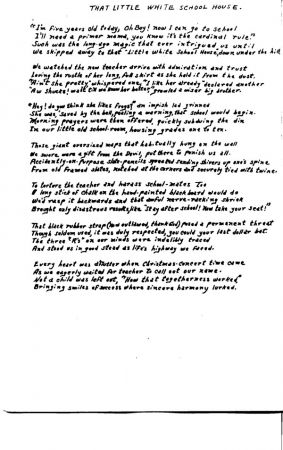 THAT LITTLE WHITE SCHOOL HOUSE.
"I'm five years old today, Oh Boy! now I can go to school
I'll need a primer mama, you know it's the cardinal rule."
Such was the long-ago magic that ever intrigued us until
We skipped away to that "Little White School House, down under the hill
We watched the new teacher arrive with admiration and trust
Loving the rustle of her long, full skirt as she held it from the dust.
"Ain't she pretty" whispered one, "I like her already" declared another
"Aw shucks! wait till we know her better," growled a wiser big brother.
"Hey! do you think she likes frogs?" an impish lad grinned
She was saved by the bell, pealing a warning, that school would begin.
Morning prayers were then offered, quickly subduing the din
In our little old school-room, housing grades one to ten.
Those giant oversized maps that habitually hung on the wall
We swore, were a gift from the Devil, put there to punish us all.
Accidently-on-purpose slate-pencils screeched sending shivers up one's spine
From old framed slates, notched at the corners and securely tied with twine.
To torture the teacher and harass school-mates too
A long stick of chalk on the hand-painted blackboard would do
We'd rasp it backwards and that awful nerve-racking shriek
Brought only disastrous results, like "Stay after school! Now take your seat!"
That black rubber strap (now outlawed, thank God) posed a permanent threat
Though seldom used, it was duly respected, you could your last dollar bet
The three "R's" on our minds were indelibly traced
And stood us in good stead as life's highway we faced.
Every heart was aflutter when Christmas-concert time came
As we eagerly waited for teacher to call out our name.
Not a child was left out, "Now that togetherness worked"
Bringing smiles of success where sincere harmony lurked.